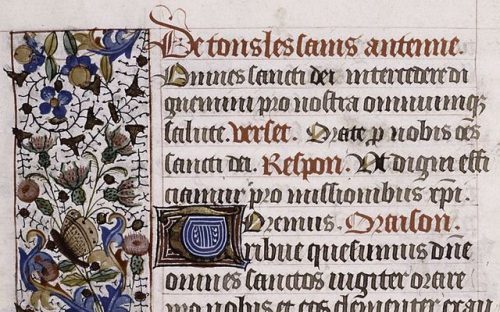 De tous les sains antenne.
Omnes sancti dei intercedere di
gnemini pro nostra omniumqꝫ
salute. verset. Orate p nobis oēs
sancti dei. Respon. Ut digni effi
ciamur pro missionibus xp̄i.
Oremus. Oraison.
Tribue quesumus dn̄e
omnes sanctos iugiter orare
pro nobis et eos clementer exau